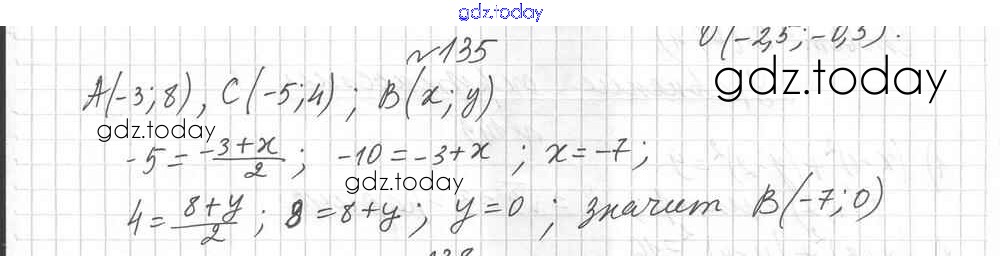 gdz.today
№135
O(-2,5; -0,5).
gdz.today
A(-3; 8), C(-5; 4); B(x; y)
gdz.today
-5 = \frac{-3+x}{2}; -10 = -3+x; x = -7;
gdz.today
4 = \frac{8+y}{2}; 8 = 8+y; y = 0; значит B(-7; 0)